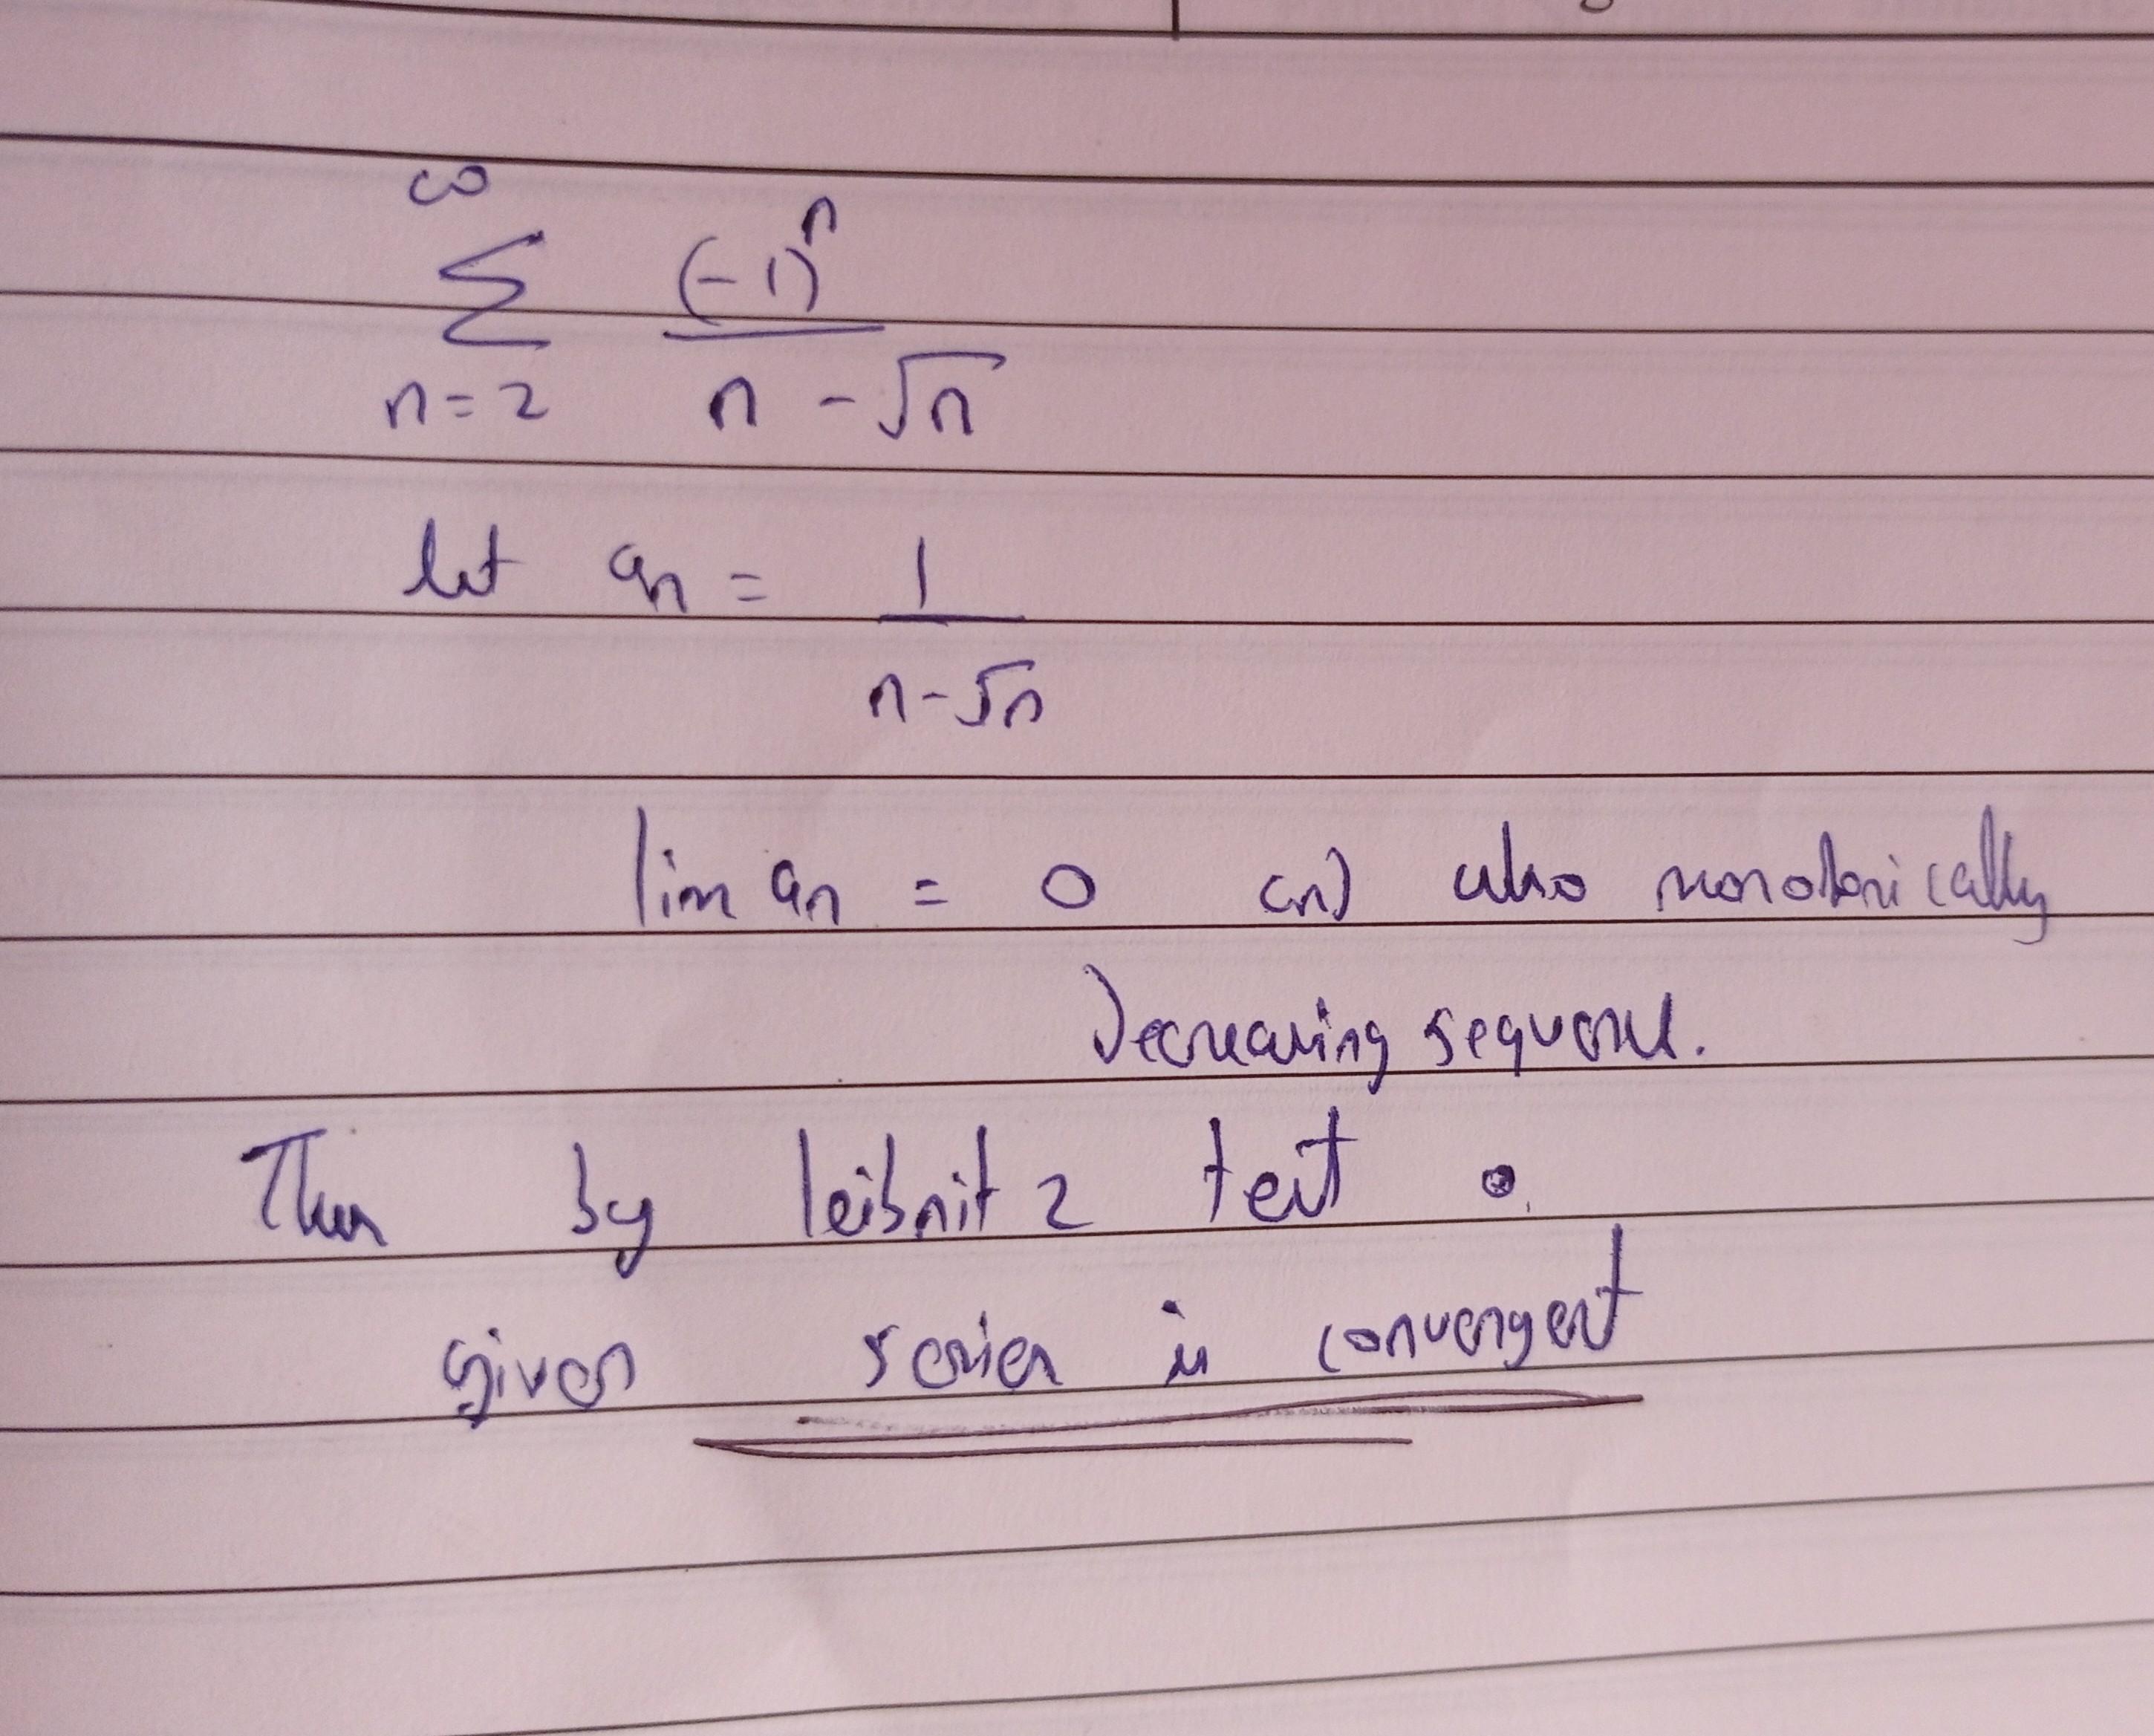 ∞
Σ (-1)^n / (n - √n)
n=2
let an = 1 / (n - √n)
lim an = 0 and also monotonically
Decreasing sequence.
Then by leibnitz test
given series is convergent